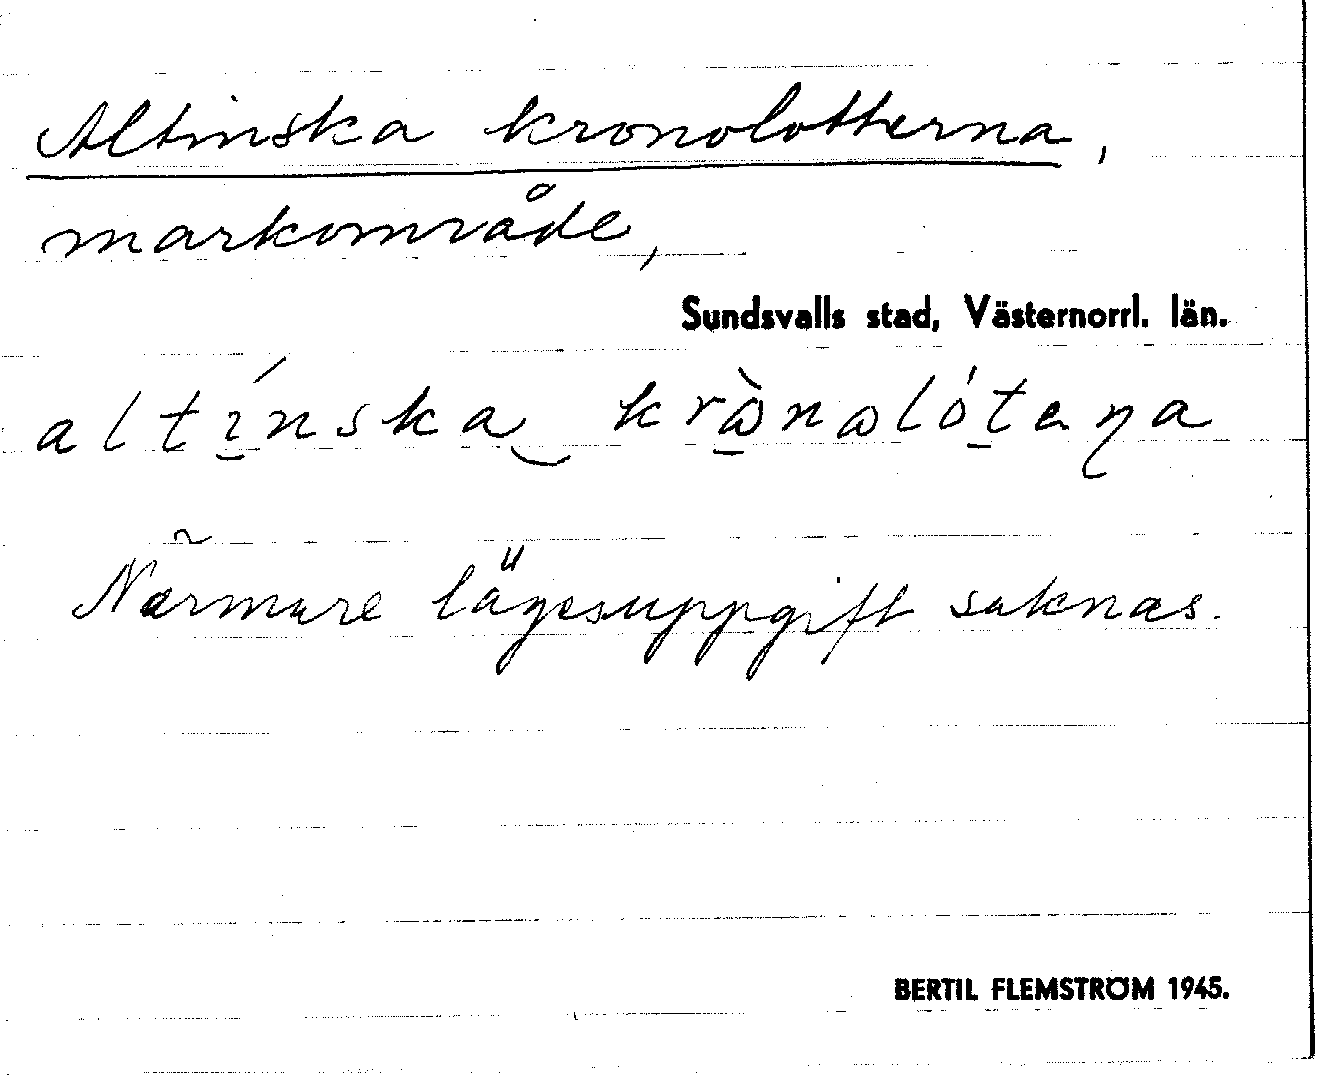 Altinska kronolotterna,
markområde,
Sundsvalls stad, Västernorrl. län.
altínska krònωlóteɳa
Närmare lägesuppgift saknas.
BERTIL FLEMSTRÖM 1945.